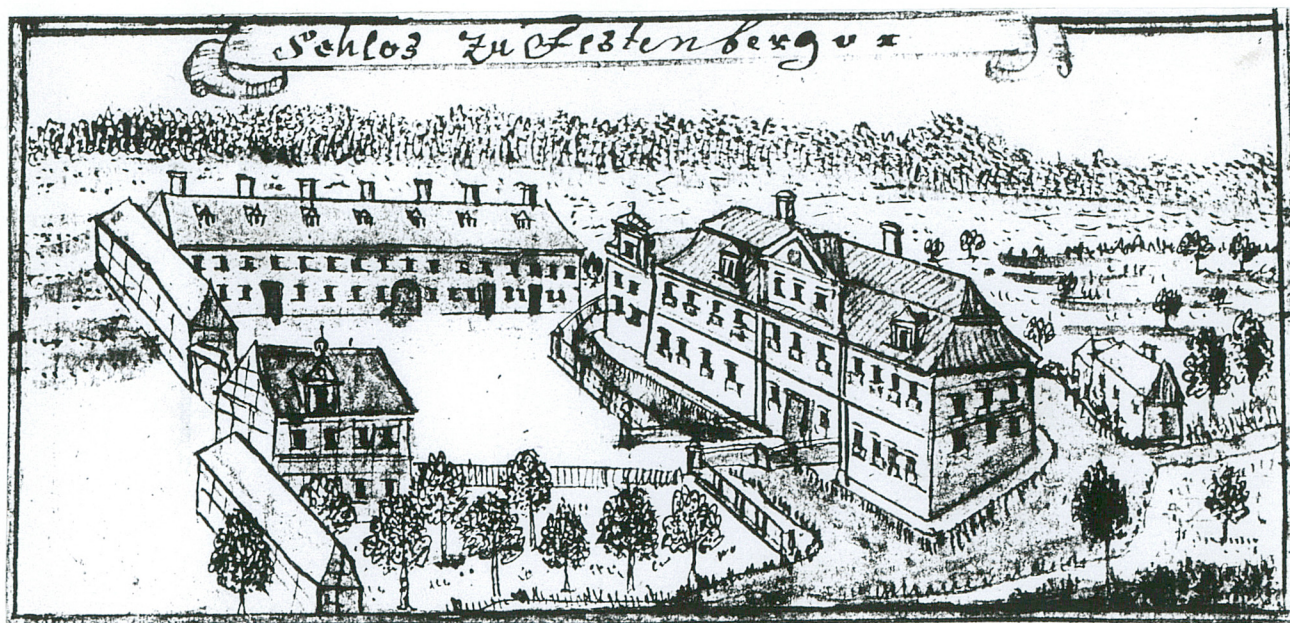 Schlos zu Festenberg